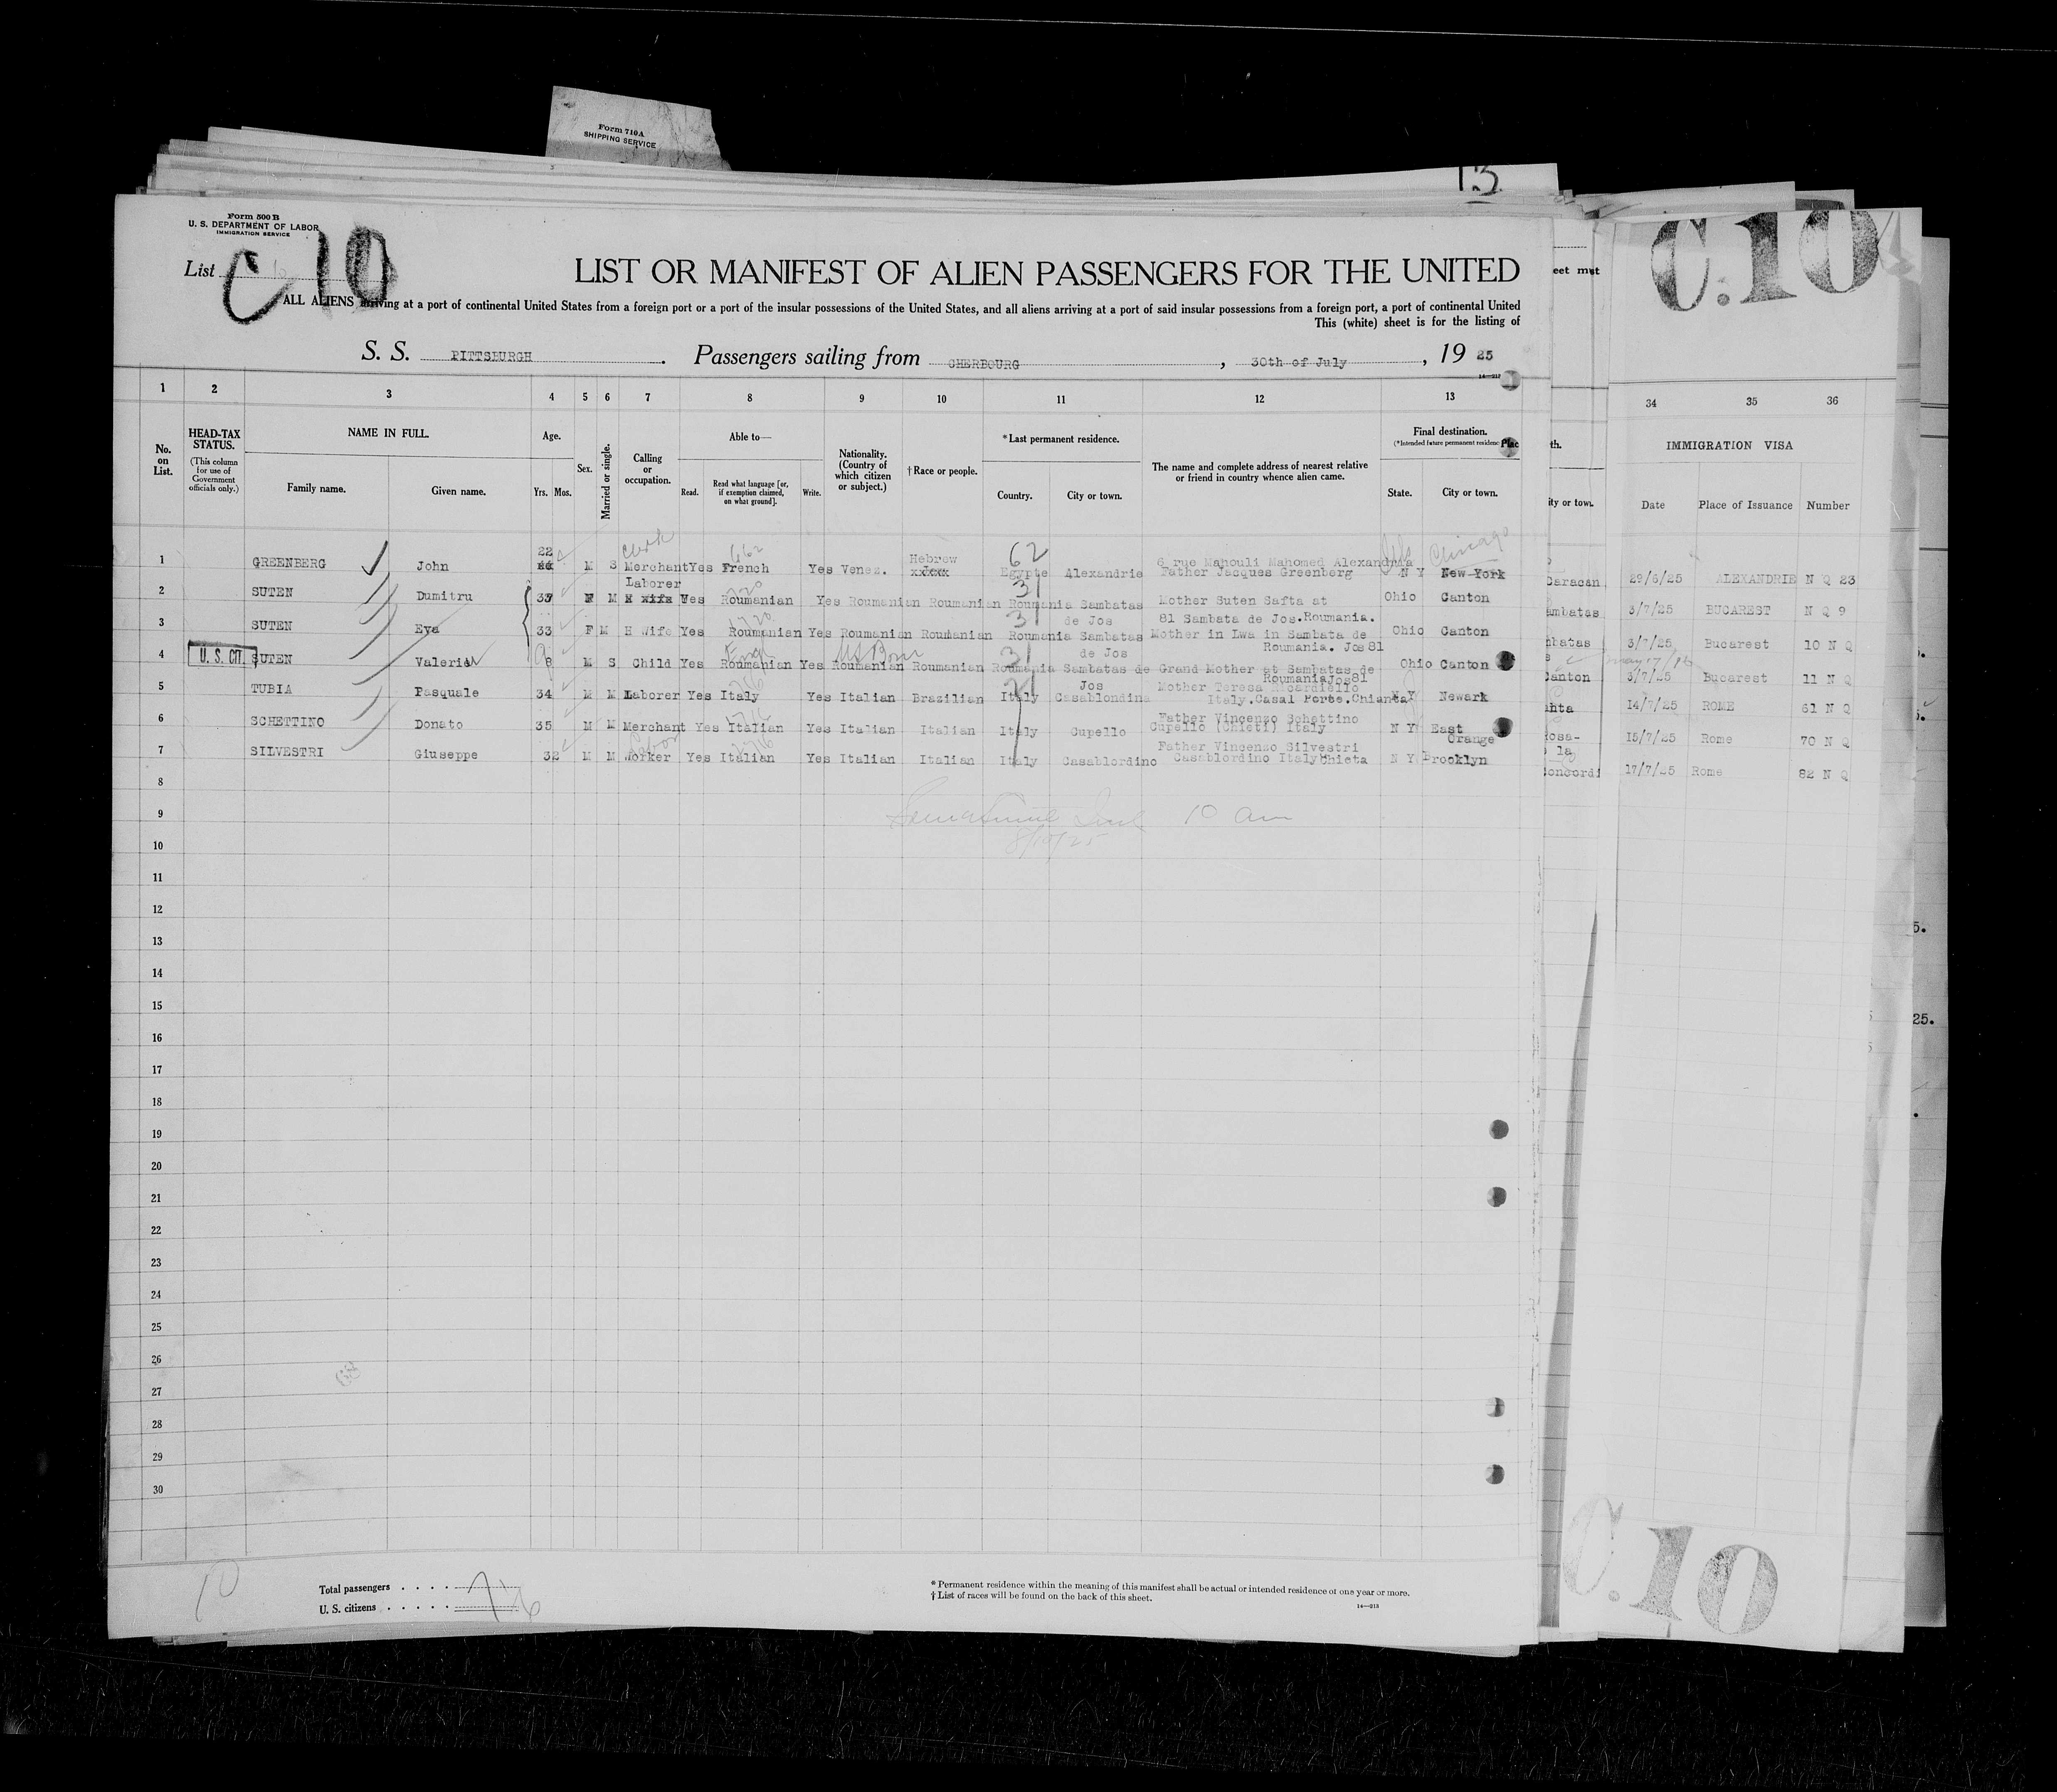 Form 710A
SHIPPING SERVICE
13
Form 500 B
U. S. DEPARTMENT OF LABOR
IMMIGRATION SERVICE
List
C 10
LIST OR MANIFEST OF ALIEN PASSENGERS FOR THE UNITED
ALL ALIENS arriving at a port of continental United States from a foreign port or a port of the insular possessions of the United States, and all aliens arriving at a port of said insular possessions from a foreign port, a port of continental United
This (white) sheet is for the listing of
S. S. PITTSBURGH. Passengers sailing from CHERBOURG, 30th of July, 19 25
eet must
C.10
1 2 3 4 5 6 7 8 9 10 11 12 13 34 35 36
No. on List.
HEAD-TAX STATUS.
(This column for use of Government officials only.)
NAME IN FULL.
Family name. Given name.
Age.
Yrs. Mos.
Sex.
Married or single.
Calling or occupation.
Able to—
Read. Read what language [or, if exemption claimed, on what ground]. Write.
Nationality. (Country of which citizen or subject.)
†Race or people.
*Last permanent residence.
Country. City or town.
The name and complete address of nearest relative or friend in country whence alien came.
Final destination.
(*Intended future permanent residence)
State. City or town.
Plac
th.
ity or town.
IMMIGRATION VISA
Date Place of Issuance Number
22 Clerk 662 Hebrew 62 6 rue Mahouli Mahomed Alexandria Chicago
1 GREENBERG John M S Merchant Yes French Yes Venez. Egypte Alexandrie Father Jacques Greenberg N Y New-York Caracas 29/6/25 ALEXANDRIE N Q 23
Laborer 31
2 SUTEN Dumitru 37 M Yes Roumanian Yes Roumanian Roumanian Roumania Sambatas de Jos Mother Suten Safta at 81 Sambata de Jos.Roumania. Ohio Canton ambatas 3/7/25 BUCAREST N Q 9
31
3 SUTEN Eva 33 F M H Wife Yes Roumanian Yes Roumanian Roumanian Roumania Sambatas de Jos Mother in Lwa in Sambata de Roumania. Jos 81 Ohio Canton mbatas 3/7/25 Bucarest 10 N Q
9 Engl US Born 31
4 U. S. CIT. SUTEN Valeria 8 M S Child Yes Roumanian Yes Roumanian Roumanian Roumania Sambatas de Jos Grand Mother at Sambatas de Roumania Jos81 Ohio Canton Canton 3/7/25 Bucarest 11 N Q
5 TUBIA Pasquale 34 M M Laborer Yes Italy Yes Italian Brazilian Italy Casablondina Mother Teresa Ricardiello Italy.Casal Porte.Chianta N Y Newark ahta 14/7/25 ROME 61 N Q
6 SCHETTINO Donato 35 M M Merchant Yes Italian Yes Italian Italian Italy Cupello Father Vincenzo Schettino Cupello (Chieti) Italy N Y East Orange 15/7/25 Rome 70 N Q
7 SILVESTRI Giuseppe 32 M M Worker Yes Italian Yes Italian Italian Italy Casablordino Father Vincenzo Silvestri Casablordino Italy Chieta N Y Brooklyn oncordi 17/7/25 Rome 82 N Q
8
9
10 am
10
8/10/25
11
12
13
14
15
16
17
18
19
20
21
22
23
24
25
26
27
28
29
30
10
Total passengers . . . .
U. S. citizens . . . . .
* Permanent residence within the meaning of this manifest shall be actual or intended residence of one year or more.
† List of races will be found on the back of this sheet.
14—213
5.
25.
C.10